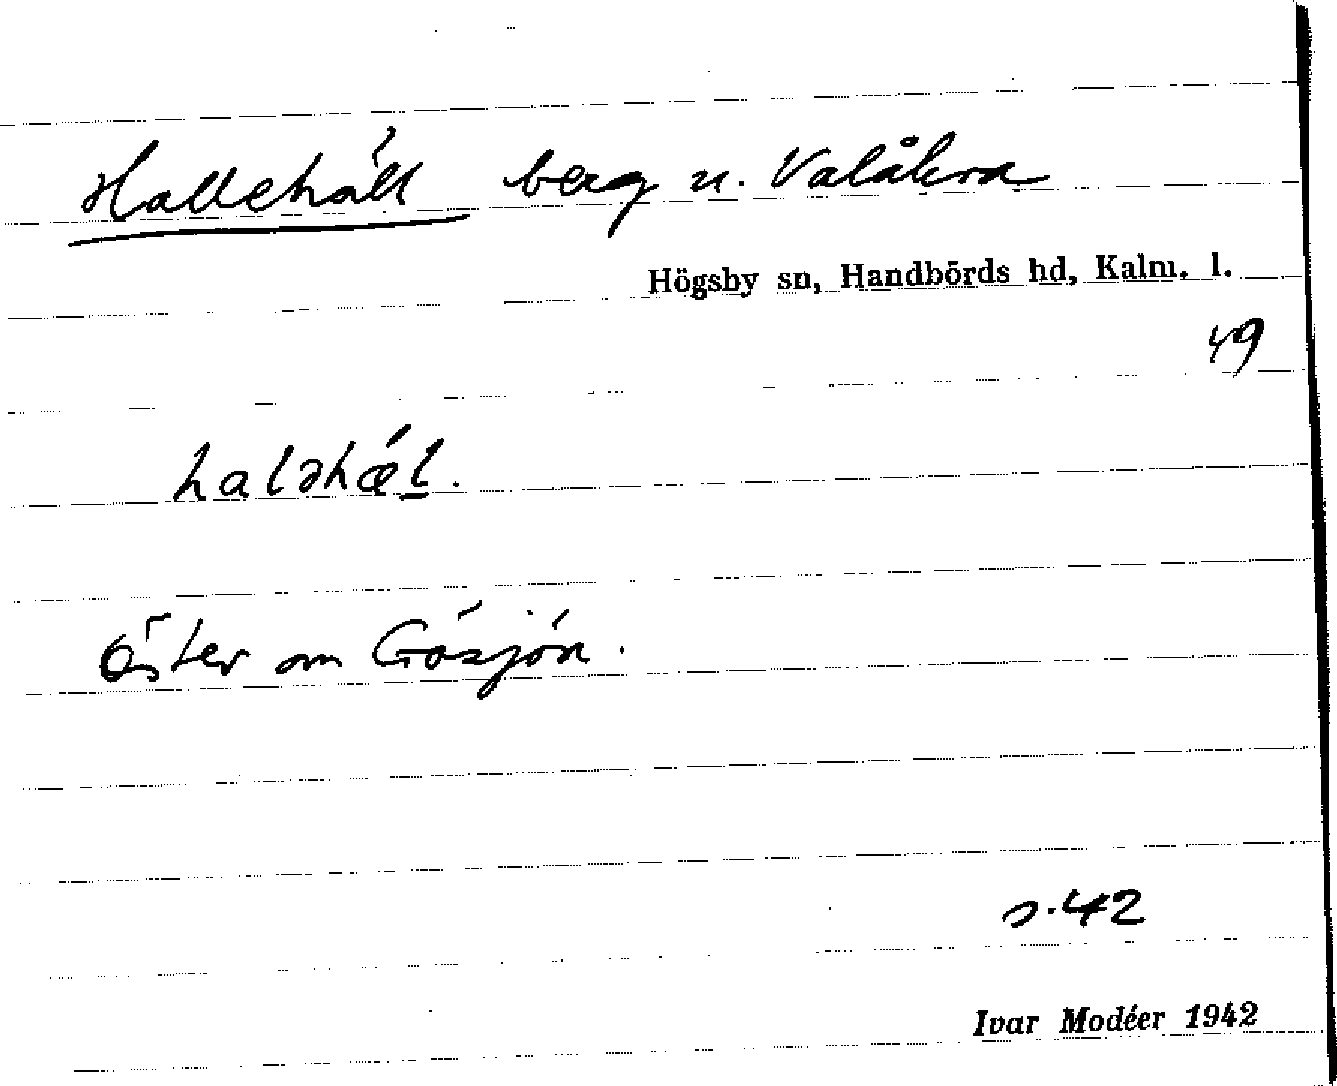 Hallehäll berg u. Valåkra
Högsby sn, Handbörds hd, Kalm. l.
49
haləhǽl.
Öster om Gösjön.
s. 42
Ivar Modéer 1942